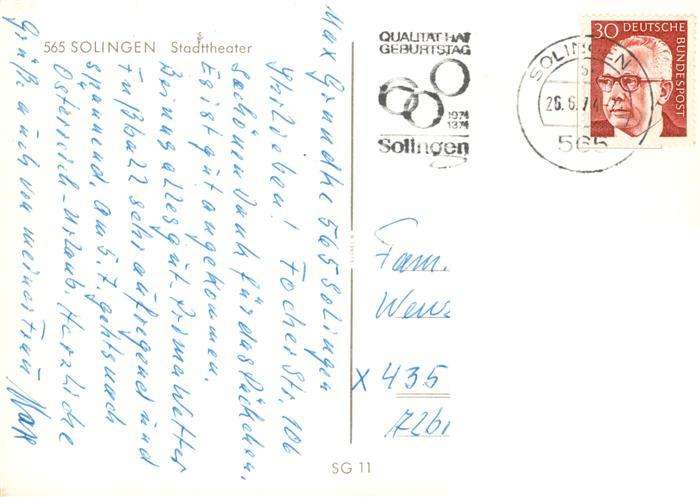 565 SOLINGEN Stadttheater
Max Grundhe 565 Solingen
Ihr Lieben! Focher Str. 106
Schönen Dank für das Päckchen.
Es ist gut angekommen.
Bei uns alles gut. Prima Wetter
Fußball sehr aufregend und
spannend. Am 5.7. gehts nach
Österreich-Urlaub. Herzliche
Grüße auch von meiner Frau Max
QUALITÄT HAT
GEBURTSTAG
1974
1374
Solingen
SOLINGEN
26.6.74
565
30 DEUTSCHE
BUNDESPOST
Fam.
x 435
SG 11